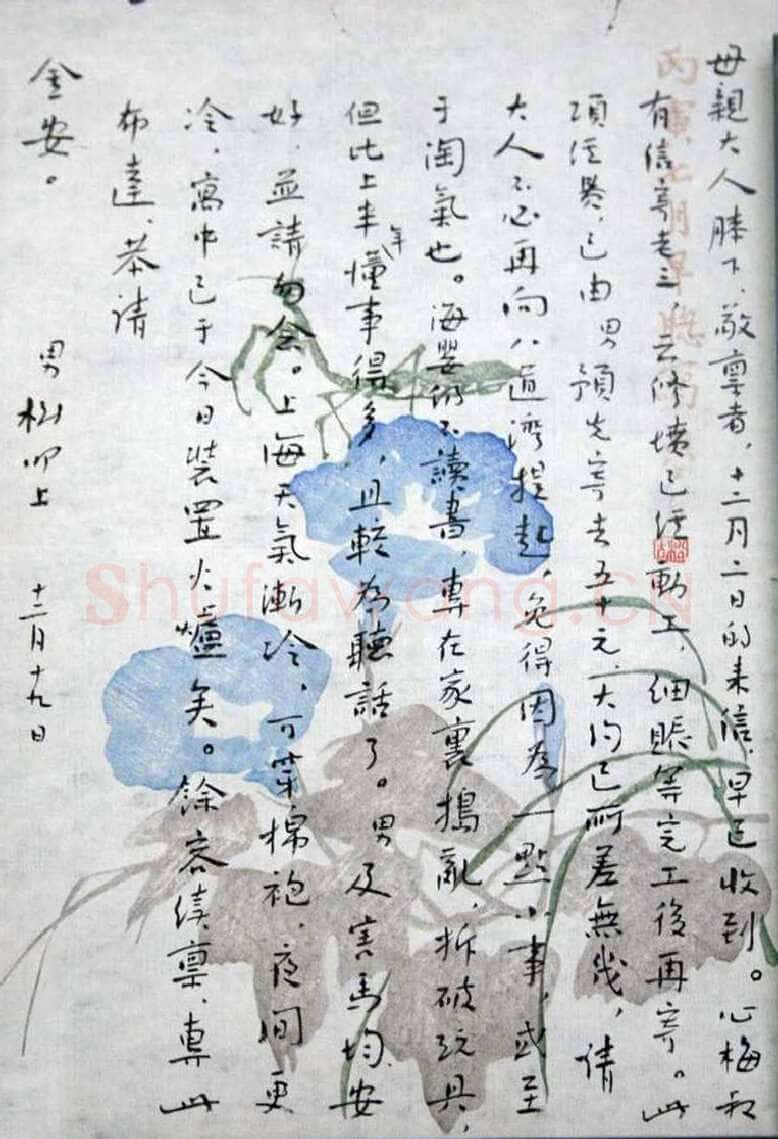 母親大人膝下、敬稟者，十二月二日的來信，早已收到。心梅叔
有信寄老三，云修墳已經動工，細賬等完工後再寄。此
項經費，已由男預先寄去五十元，大約已所差無幾，請
大人不必再向八道灣提起，免得因為一點小事，或至
于淘氣也。海嬰仍不讀書，專在家裏搗亂，拆破玩具，
但比上半年懂事得多，且較為聽話了。男及害馬均安
好，並請勿念。上海天氣漸冷，可穿棉袍，夜間更
冷，寓中已于今日裝置火爐矣。餘容續稟，專此
布達，恭請
金安。
男樹叩上 十二月十九日
丙寅七月早
Shufawang.CN